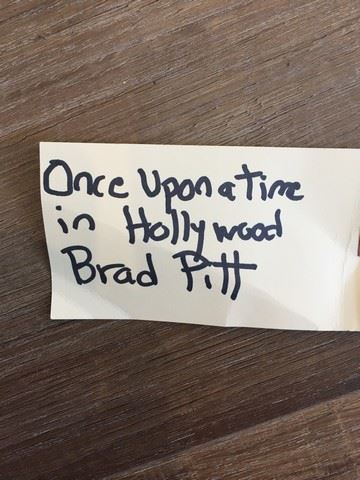 Once Upon a Time
in Hollywood
Brad Pitt